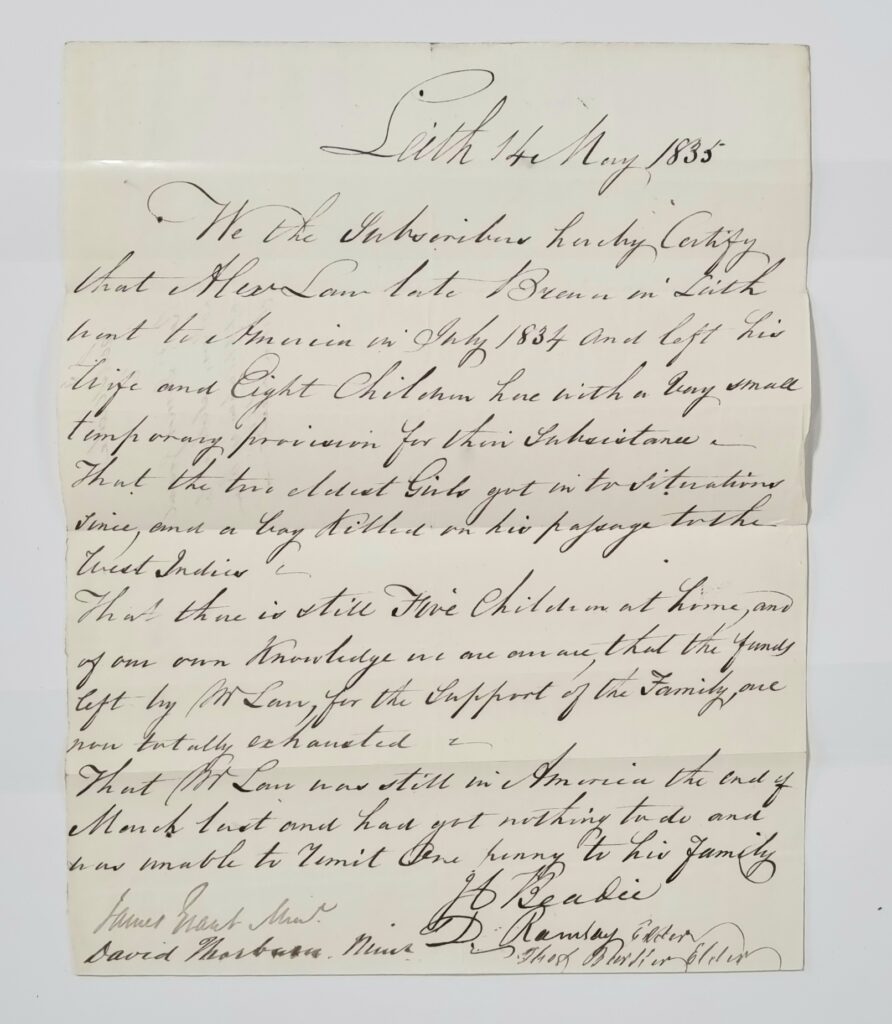 Leith 14 May 1835
We the Subscribers hereby Certify
that Alexr Law late Brewer in Leith
went to America in July 1834 and left his
Wife and Eight Children here with a Very small
temporary provision for their Subsistance
That the two eldest Girls got in to situations
since, and a boy Killed on his passage to the
West Indies
That there is still Five Children at home, and
of our own Knowledge we are aware, that the funds
left by Mr Law, for the Support of the Family, are
now totally exhausted
That Mr Law was still in America the end of
March last and had got nothing to do and
was unable to remit One penny to his family
James Grant Minr.
H Beadie
David Thorburn. Minr
D. Ramsay Elder
Thos Elder